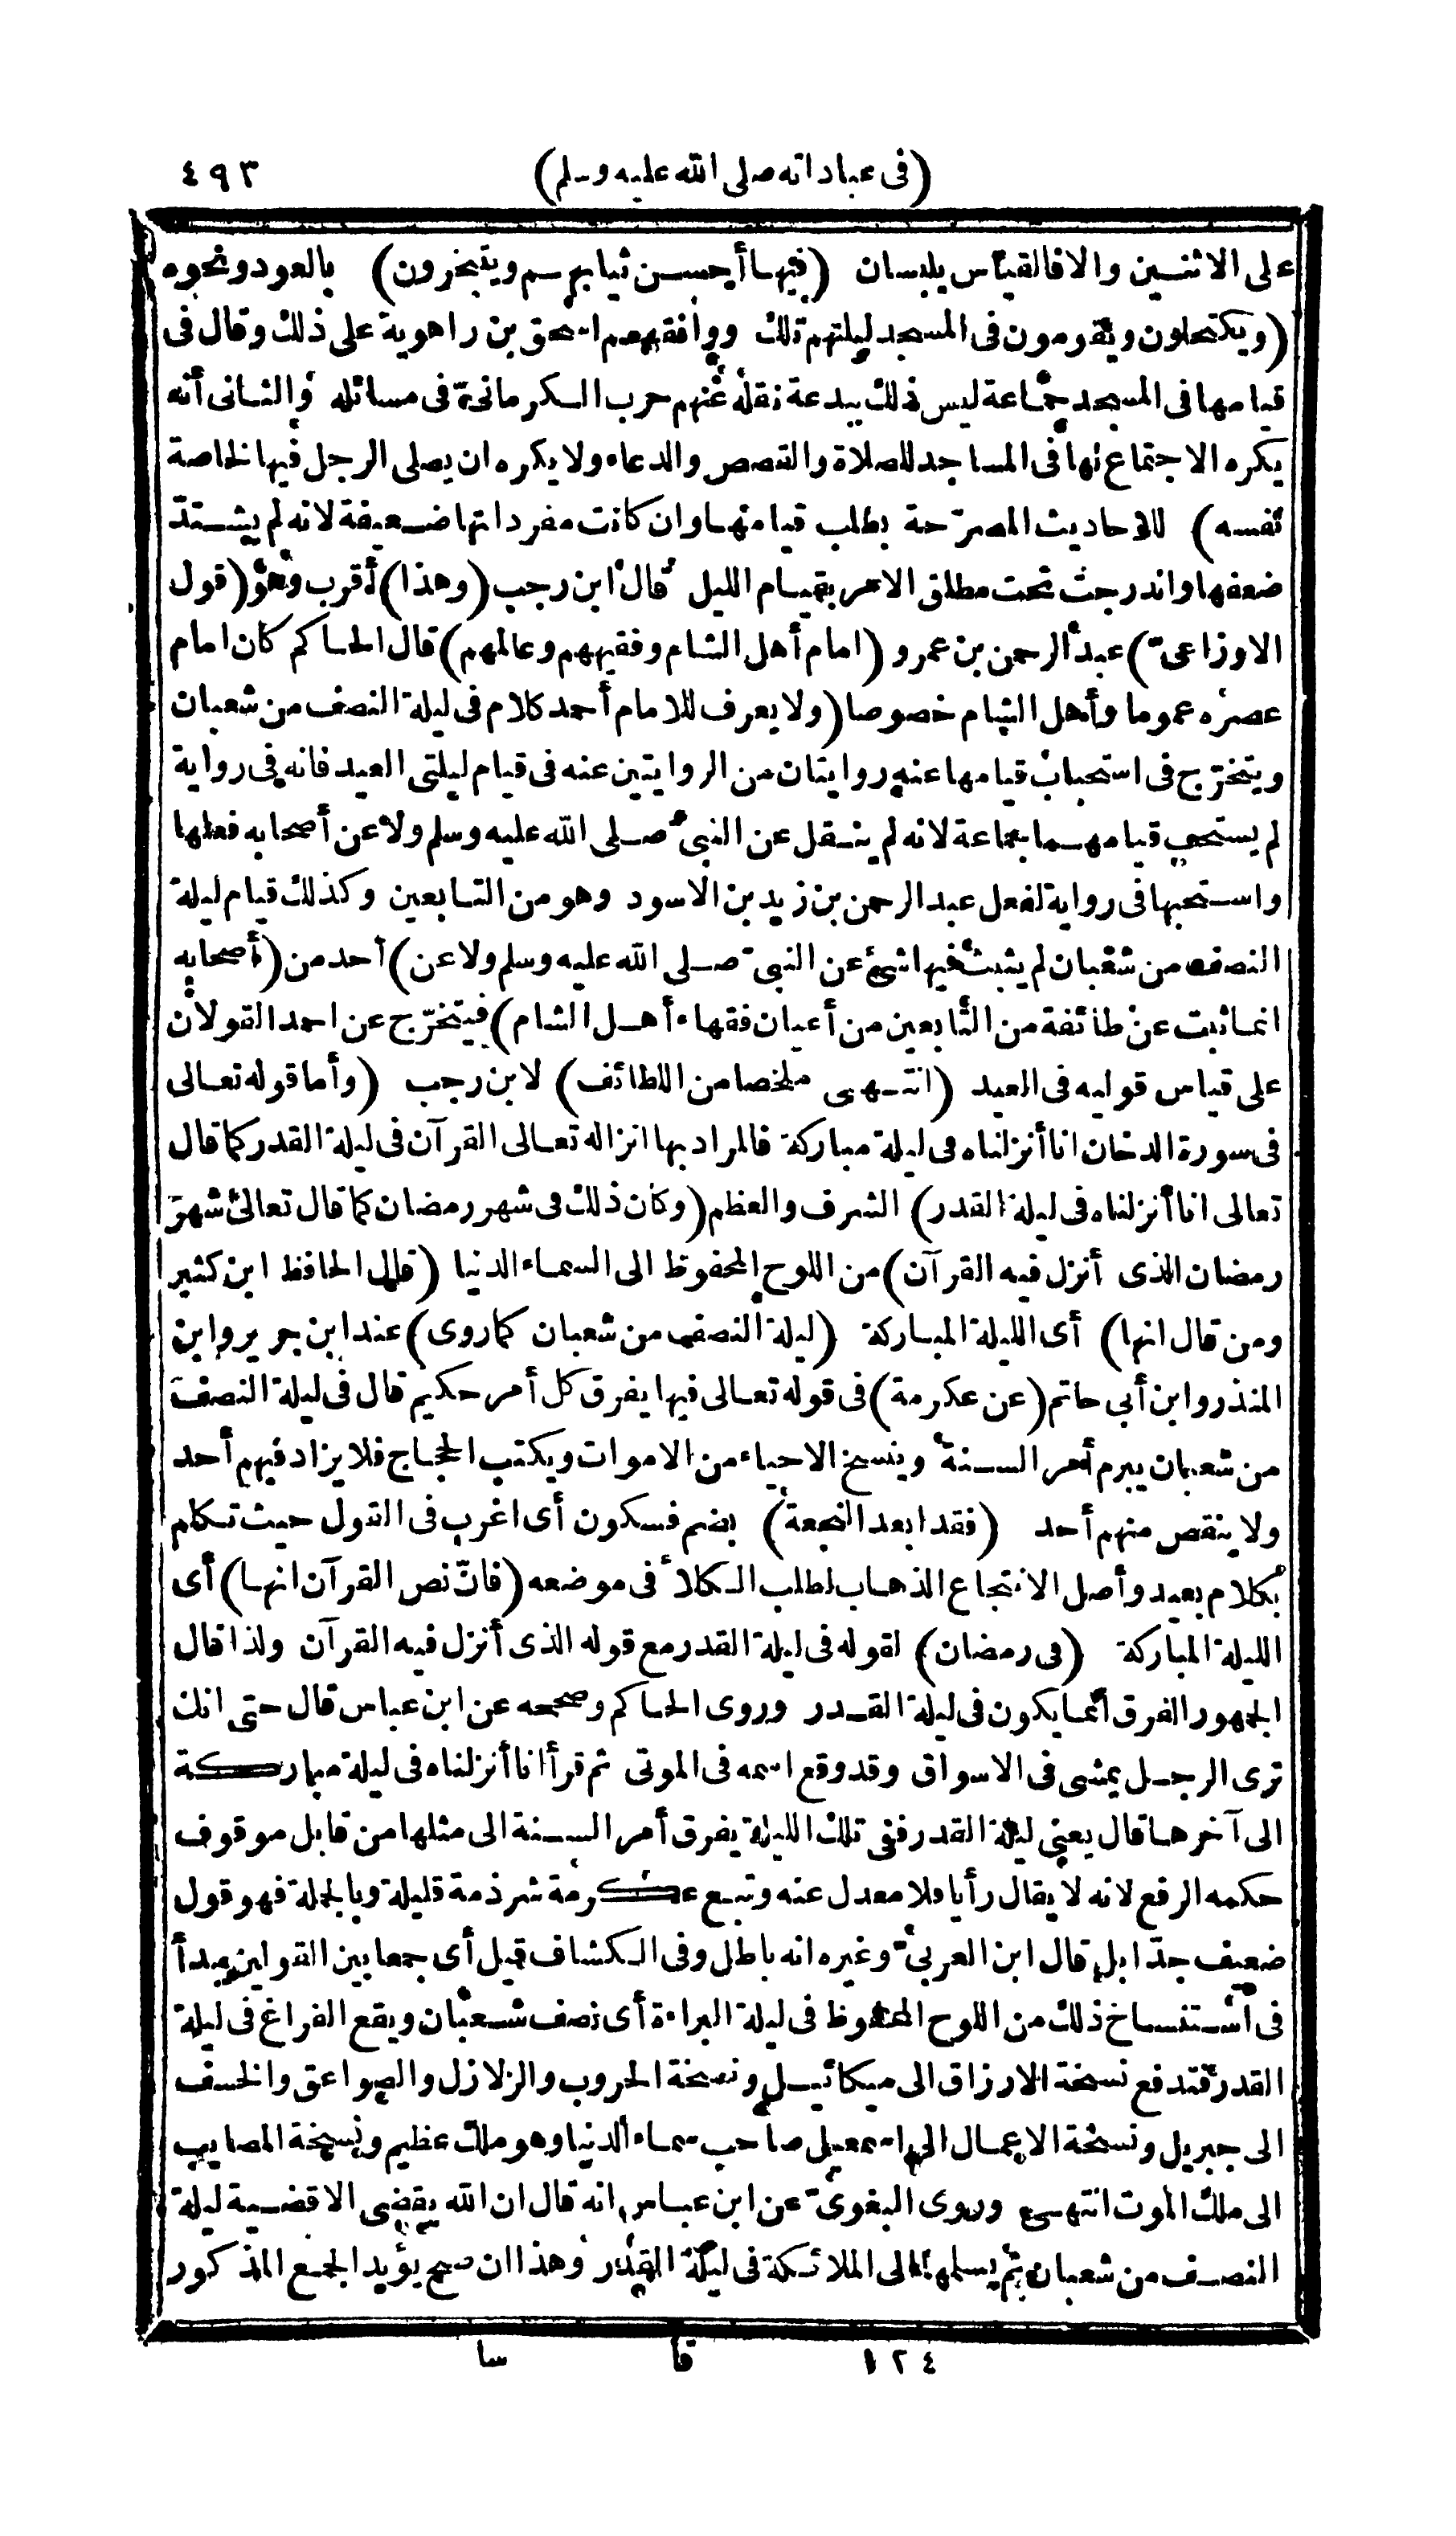 (فى عباداته صلى الله عليه وسلم) ٤٩٣
على الاثنين والا فالقياس يلبسان (فيها أحسن ثيابهم ويتبخرون) بالعود ونحوه
(ويكتحلون ويقومون فى المسجد ليلتهم تلك ووافقهم اسحق بن راهوية على ذلك وقال فى
قيامها فى المسجد جماعة ليس ذلك ببدعة نقله عنهم حرب الكرمانىّ فى مسائله والثانى أنه
يكره الاجتماع لها فى المساجد للصلاة والقصص والدعاء ولا يكره ان يصلى الرجل فيها لخاصة
نفسه) للاحاديث المصرّحة بطلب قيامها وان كانت مفرداتها ضعيفة لانه لم يشتدّ
ضعفها واندرجت تحت مطلق الامر بقيام الليل قال ابن رجب (وهذا) أقرب وهو (قول
الاوزاعىّ) عبد الرحمن بن عمرو (امام أهل الشام وفقيههم وعالمهم) قال الحاكم كان امام
عصره عموما وأهل الشام خصوصا (ولا يعرف للامام أحمد كلام فى ليلة النصف من شعبان
ويتخرّج فى استحباب قيامها عنه روايتان من الروايتين عنه فى قيام ليلتى العيد فانه فى رواية
لم يستحب قيامهما جماعة لانه لم ينقل عن النبى صلى الله عليه وسلم ولا عن أصحابه فعلها
واستحبها فى رواية لفعل عبد الرحمن بن زيد بن الاسود وهو من التابعين وكذلك قيام ليلة
النصف من شعبان لم يثبت فيها شئ عن النبىّ صلى الله عليه وسلم ولا عن) أحد من (أصحابه
انما ثبت عن طائفة من التابعين من أعيان فقهاء أهل الشام) فيتخرّج عن احمد القولان
على قياس قوليه فى العيد (انتهى ملخصا من اللطائف) لابن رجب (وأما قوله تعالى
فى سورة الدخان انا أنزلناه فى ليلة مباركة فالمراد بها انزاله تعالى القرآن فى ليلة القدر كما قال
تعالى انا أنزلناه فى ليلة القدر) الشرف والعظم (وكان ذلك فى شهر رمضان كما قال تعالى شهر
رمضان الذى أنزل فيه القرآن) من اللوح المحفوظ الى السماء الدنيا (قال الحافظ ابن كثير
ومن قال انها) أى الليلة المباركة (ليلة النصف من شعبان كما روى) عند ابن جرير وابن
المنذر وابن أبى حاتم (عن عكرمة) فى قوله تعالى فيها يفرق كل أمر حكيم قال فى ليلة النصف
من شعبان يبرم أمر السنة وينسخ الاحياء من الاموات ويكتب الحجاج فلا يزاد فيهم أحد
ولا ينقص منهم أحد (فقد ابعد النجعة) بضم فسكون أى اغرب فى القول حيث تكلم
بكلام بعيد وأصل الانتجاع الذهاب لطلب الكلأ فى موضعه (فانّ نص القرآن انها) أى
الليلة المباركة (فى رمضان) لقوله فى ليلة القدر مع قوله الذى أنزل فيه القرآن ولذا قال
الجمهور الفرق انما يكون فى ليلة القدر وروى الحاكم وصححه عن ابن عباس قال حتى انك
ترى الرجل يمشى فى الاسواق وقد وقع اسمه فى الموتى ثم قرأ انا أنزلناه فى ليلة مباركة
الى آخرها قال يعنى ليلة القدر ففى تلك الليلة يفرق أمر السنة الى مثلها من قابل موقوف
حكمه الرفع لانه لا يقال رأيا فلا معدل عنه وتبع عكرمة شرذمة قليلة وبالجملة فهو قول
ضعيف جدّا بل قال ابن العربىّ وغيره انه باطل وفى الكشاف قيل أى جمعا بين القولين يبدأ
فى استنساخ ذلك من اللوح المحفوظ فى ليلة البراءة أى نصف شعبان ويقع الفراغ فى ليلة
القدر فتدفع نسخة الارزاق الى ميكائيل ونسخة الحروب والزلازل والصواعق والخسف
الى جبريل ونسخة الاعمال الى اسمعيل صاحب سماء الدنيا وهو ملك عظيم ونسخة المصايب
الى ملك الموت انتهى وروى البغوىّ عن ابن عباس انه قال ان الله يقضى الاقضية ليلة
النصف من شعبان ثم يسلمها الى الملائكة فى ليلة القدر وهذا ان صح يؤيد الجمع المذكور
١٢٤ قا سا